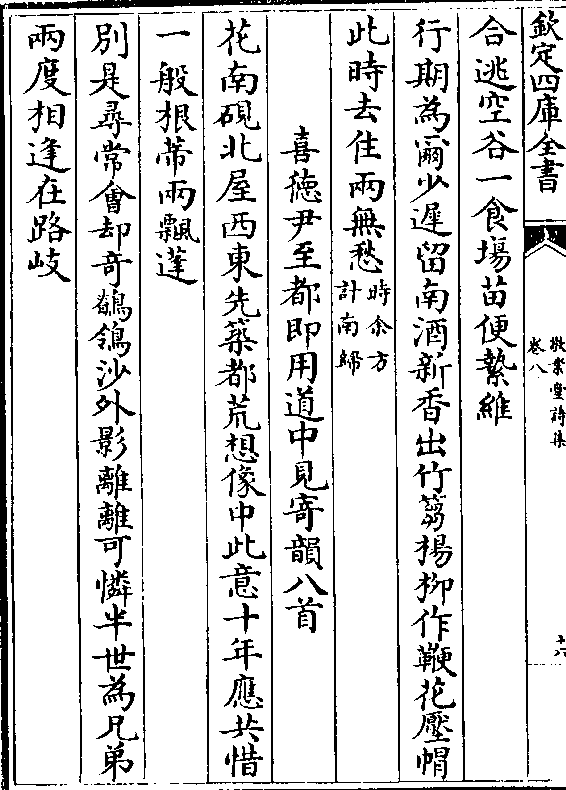 欽定四庫全書
敬業堂詩集
卷八
十六
合逃空谷一食場苗便縶維
行期為爾少遲留南酒新香出竹篘楊柳作鞭花壓帽
此時去住兩無愁時余方計南歸
喜德尹至都即用道中見寄韻八首
花南硯北屋西東先築都荒想像中此意十年應共惜
一般根蒂兩飄蓬
別是尋常會却奇鶺鴒沙外影離離可憐半世為兄弟
兩度相逢在路岐